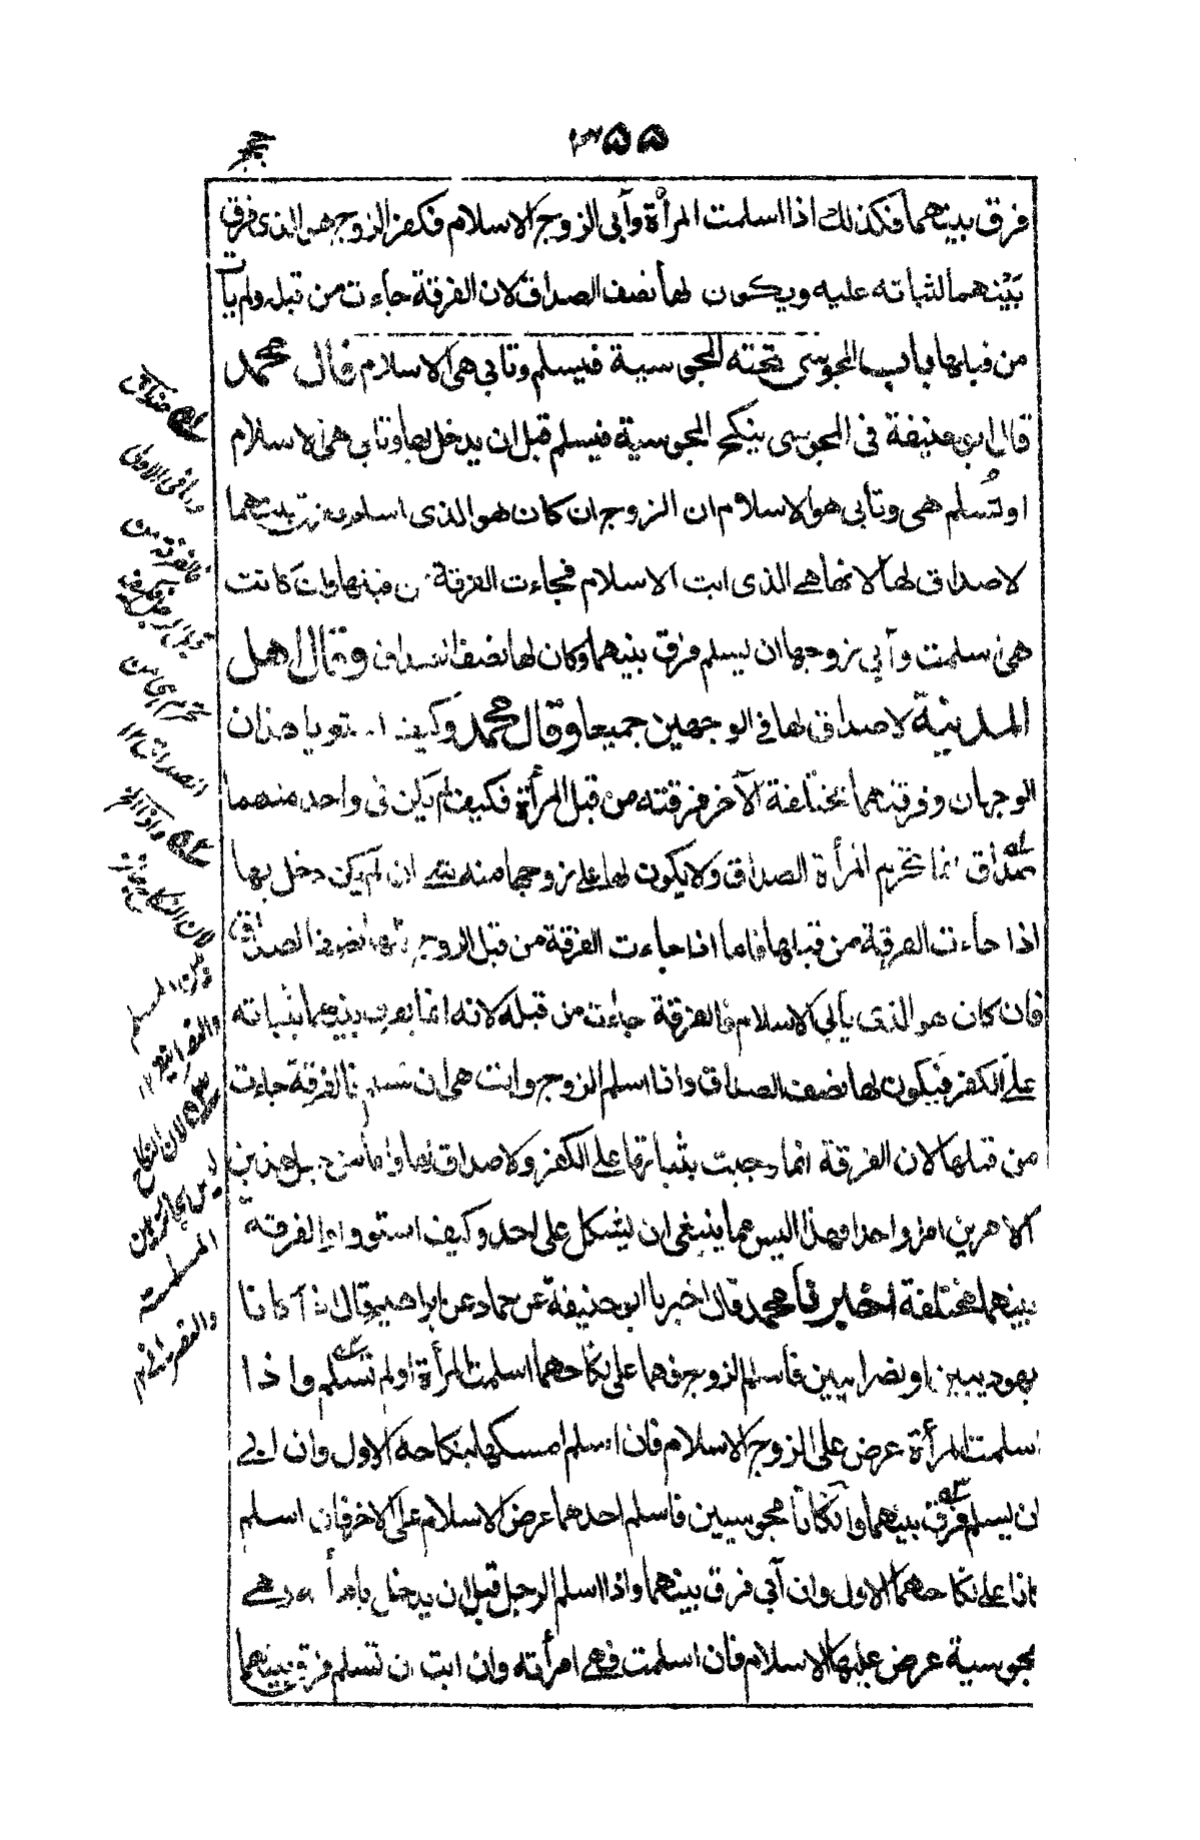 ٣٥٥
حجر
فرق بينهما فكذلك اذا اسلمت المرأة وأبى الزوج الاسلام فكفر الزوج هو الذى فرق
بَيْنهما لثباته عليه ويكون لها نصف الصداق لان الفرقة جاءت من قبله ولم يأت
من قبلها باب المجوسى تحته المجوسية فيسلم وتابى هى الاسلام قال محمد
قال ابو حنيفة فى المجوسى ينكح المجوسية فيسلم قبل ان يدخل بها وتابى هى الاسلام
او تُسلم هى وتأبى هو الاسلام ان الزوج ان كان هو الذى اسلم يفرق بينهما
لا صداق لها لانها هے الذى ابت الاسلام فجاءت الفرقة من قبلها وان كانت
هى اسلمت وآبى زوجها ان يسلم فرق بينهما وكان لها نصف الصداق وقال اهل
المدينة لا صداق لها فى الوجهين جميعا وقال محمد وكيف استويا هذان
الوجهان وفرقتهما مختلفة الآخر فرقته من قبل المرأة فكيف لم يكن فى واحد منهما
صداق انما تحريم المرأة الصداق ولا يكون لها على زوجها منه شے ان لم يكن دخل بها
اذا جاءت الفرقة من قبلها فاما اذا جاءت الفرقة من قبل الزوج فلها نصف الصداق
فان كان هو الذى يأبى الاسلام فالفرقة جاءت من قبله لانه انما يفرق بينهما بثباته
على الكفر فيكون لها نصف الصداق واذا اسلم الزوج وابت هى ان تسلم فالفرقة جاءت
من قبلها لان الفرقة انما وجبت بثباتها على الكفر ولا صداق لها واما من جعل هذين
الامرين امرا واحدا فهذا اليس مما ينبغى ان يشكل على احد وكيف استووا والفرقة
بينهما مختلفة اخبرنا محمد قال اخبرنا ابو حنيفة عن حماد عن ابراهيم قال اذا كانا
يهوديين او نصرانيين فاسلم الزوج فهما على نكاحهما اسلمت المرأة او لم تسلم واذا
اسلمت المرأة عرض على الزوج الاسلام فان اسلم امسكها بنكاحه الاول وان ابى
ان يسلم فرق بينهما وان كانا مجوسيين فاسلم احدهما عرض الاسلام على الاخر فان اسلم
كانا على نكاحهما الاول وان آبى فرق بينهما واذا اسلم الرجل قبل ان يدخل بامرأته وهے
مجوسية عرض عليها الاسلام فان اسلمت فهى امرأته وان ابت ان تسلم فرق بينهما
صداق
فالفرقة من
الصداق ١٢
لان النكاح
لان النكاح
ليس بجائز بين
المسلمة